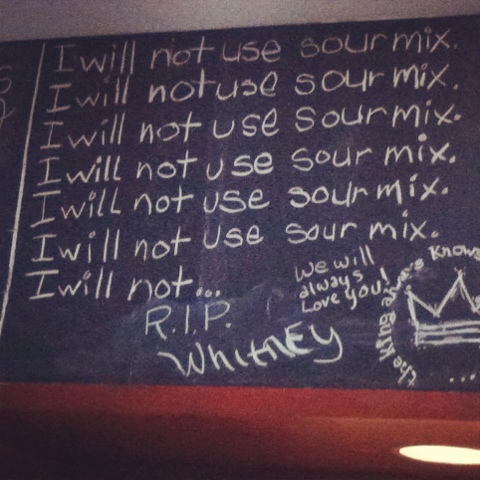 I will not use sour mix.
I will not use sour mix.
I will not use sour mix.
I will not use sour mix.
I will not use sour mix.
I will not use sour mix.
I will not...
R.I.P.
Whitney
We will
always
Love you!
the
Knows
...